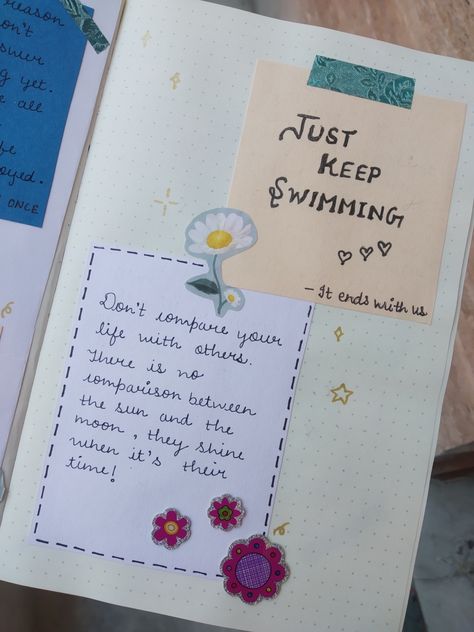 reason
don't
g yet.
all
fe
oyed.
ONCE
JUST
KEEP
SWIMMING
- It ends with us
Don't compare your
life with others.
There is no
comparison between
the sun and the
moon, they shine
when it's their
time!